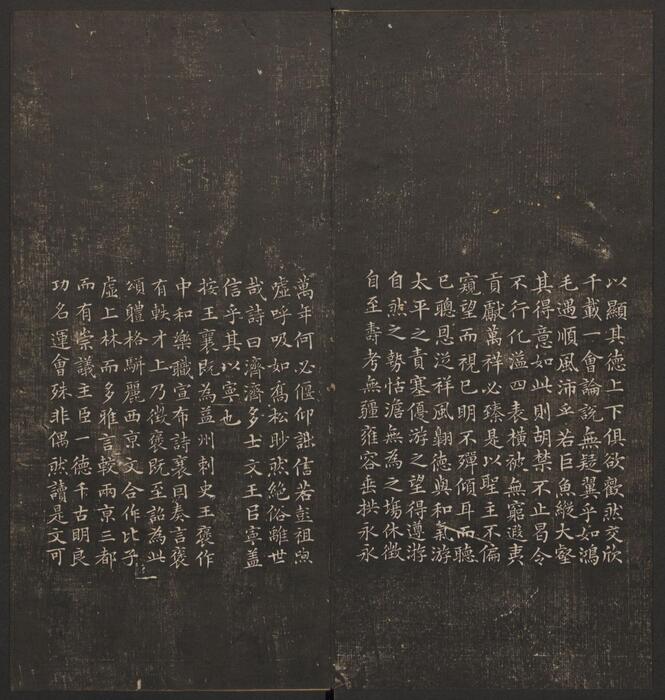 以顯其德上下俱欲歡然交欣
千載一會論說無疑翼乎如鴻
毛遇順風沛乎若巨魚縱大壑
其得意如此則胡禁不止曷令
不行化溢四表橫被無窮遐夷
貢獻萬祥必臻是以聖主不偏
窺望而視已明不殫傾耳而聽
已聰恩從祥風翱德與和氣游
太平之責塞優游之望得遵游
自然之勢恬澹無為之場休徵
自至壽考無疆雍容垂拱永永
萬年何必偃仰詘信若彭祖呴
噓呼吸如喬松眇然絕俗離世
哉詩曰濟濟多士文王㠯寧蓋
信乎其以寧也
按王襄既為益州刺史王褒作
中和樂職宣布詩襄因奏言褒
有軼才上乃徵褒既至詔為此
頌體格駢麗西京文合作比子
虛上林而多雅言較兩京三都
而有崇議主臣一德千古明良
功名運會殊非偶然讀是文可